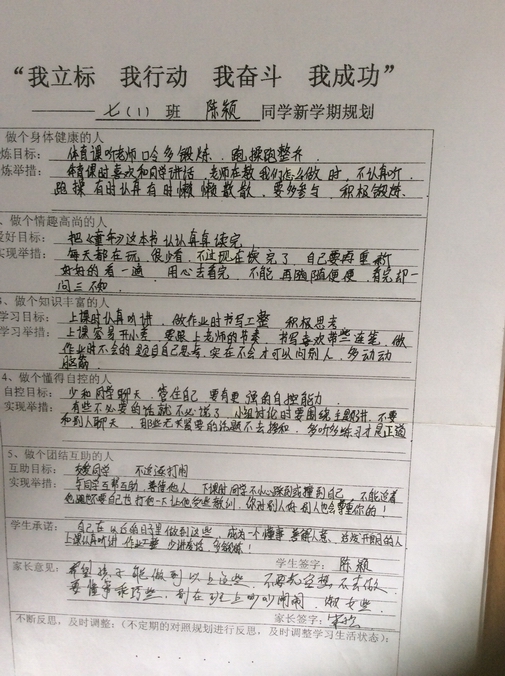 “我立标　我行动　我奋斗　我成功”
七(1) 班 陈颖 同学新学期规划
做个身体健康的人
炼目标： 体育课听老师口令多锻炼、跑操跑整齐
炼举措： 体育课时喜欢和同学讲话，老师在教我们怎么做时，不认真听
跑操有时认真有时懒懒散散，要多参与，积极锻炼
、做个情趣高尚的人
爱好目标： 把《童年》这本书认认真真读完
实现举措： 每天都在玩，很少看，不过现在快完了，自己要再重新
好好的看一遍 用心去看完 不能再随随便便，看完却一
问三不知
、做个知识丰富的人
学习目标： 上课时认真听讲，做作业时书写工整 积极思考
学习举措： 上课容易开小差 要跟上老师的节奏，书写喜欢带些连笔，做
作业时不会的题目自己思考，实在不会才可以问别人，多动动
脑筋
4、做个懂得自控的人
自控目标： 少和同学聊天，管住自己 要有更强的自控能力
实现举措： 有些不必要的话就不必说了，小组讨论时要围绕主题讲，不要
和别人聊天，那些无关紧要的话题不去掺和，多听多练习才是正道
5、做个团结互助的人
互助目标： 友爱同学 不追逐打闹
实现举措： 与同学互帮互助，要懂他人 下课时同学不小心踩到或撞到自己，不能追着
他 自己也打他一下让他 教训，你对别人好别人也会尊重你的！
学生承诺： 自己在以后的日子里做到这些 成为一个懂事 善解人意、活泼开朗的人
上课认真听讲 作业工整 少讲废话，多锻炼！
学生签字： 陈颖
家长意见： 希望孩子能做到以上这些，不要光空想不去做
要懂事乖巧些，别在班上吵吵闹闹，淑女些
家长签字：
不断反思，及时调整：（不定期的对照规划进行反思，及时调整学习生活状态）：